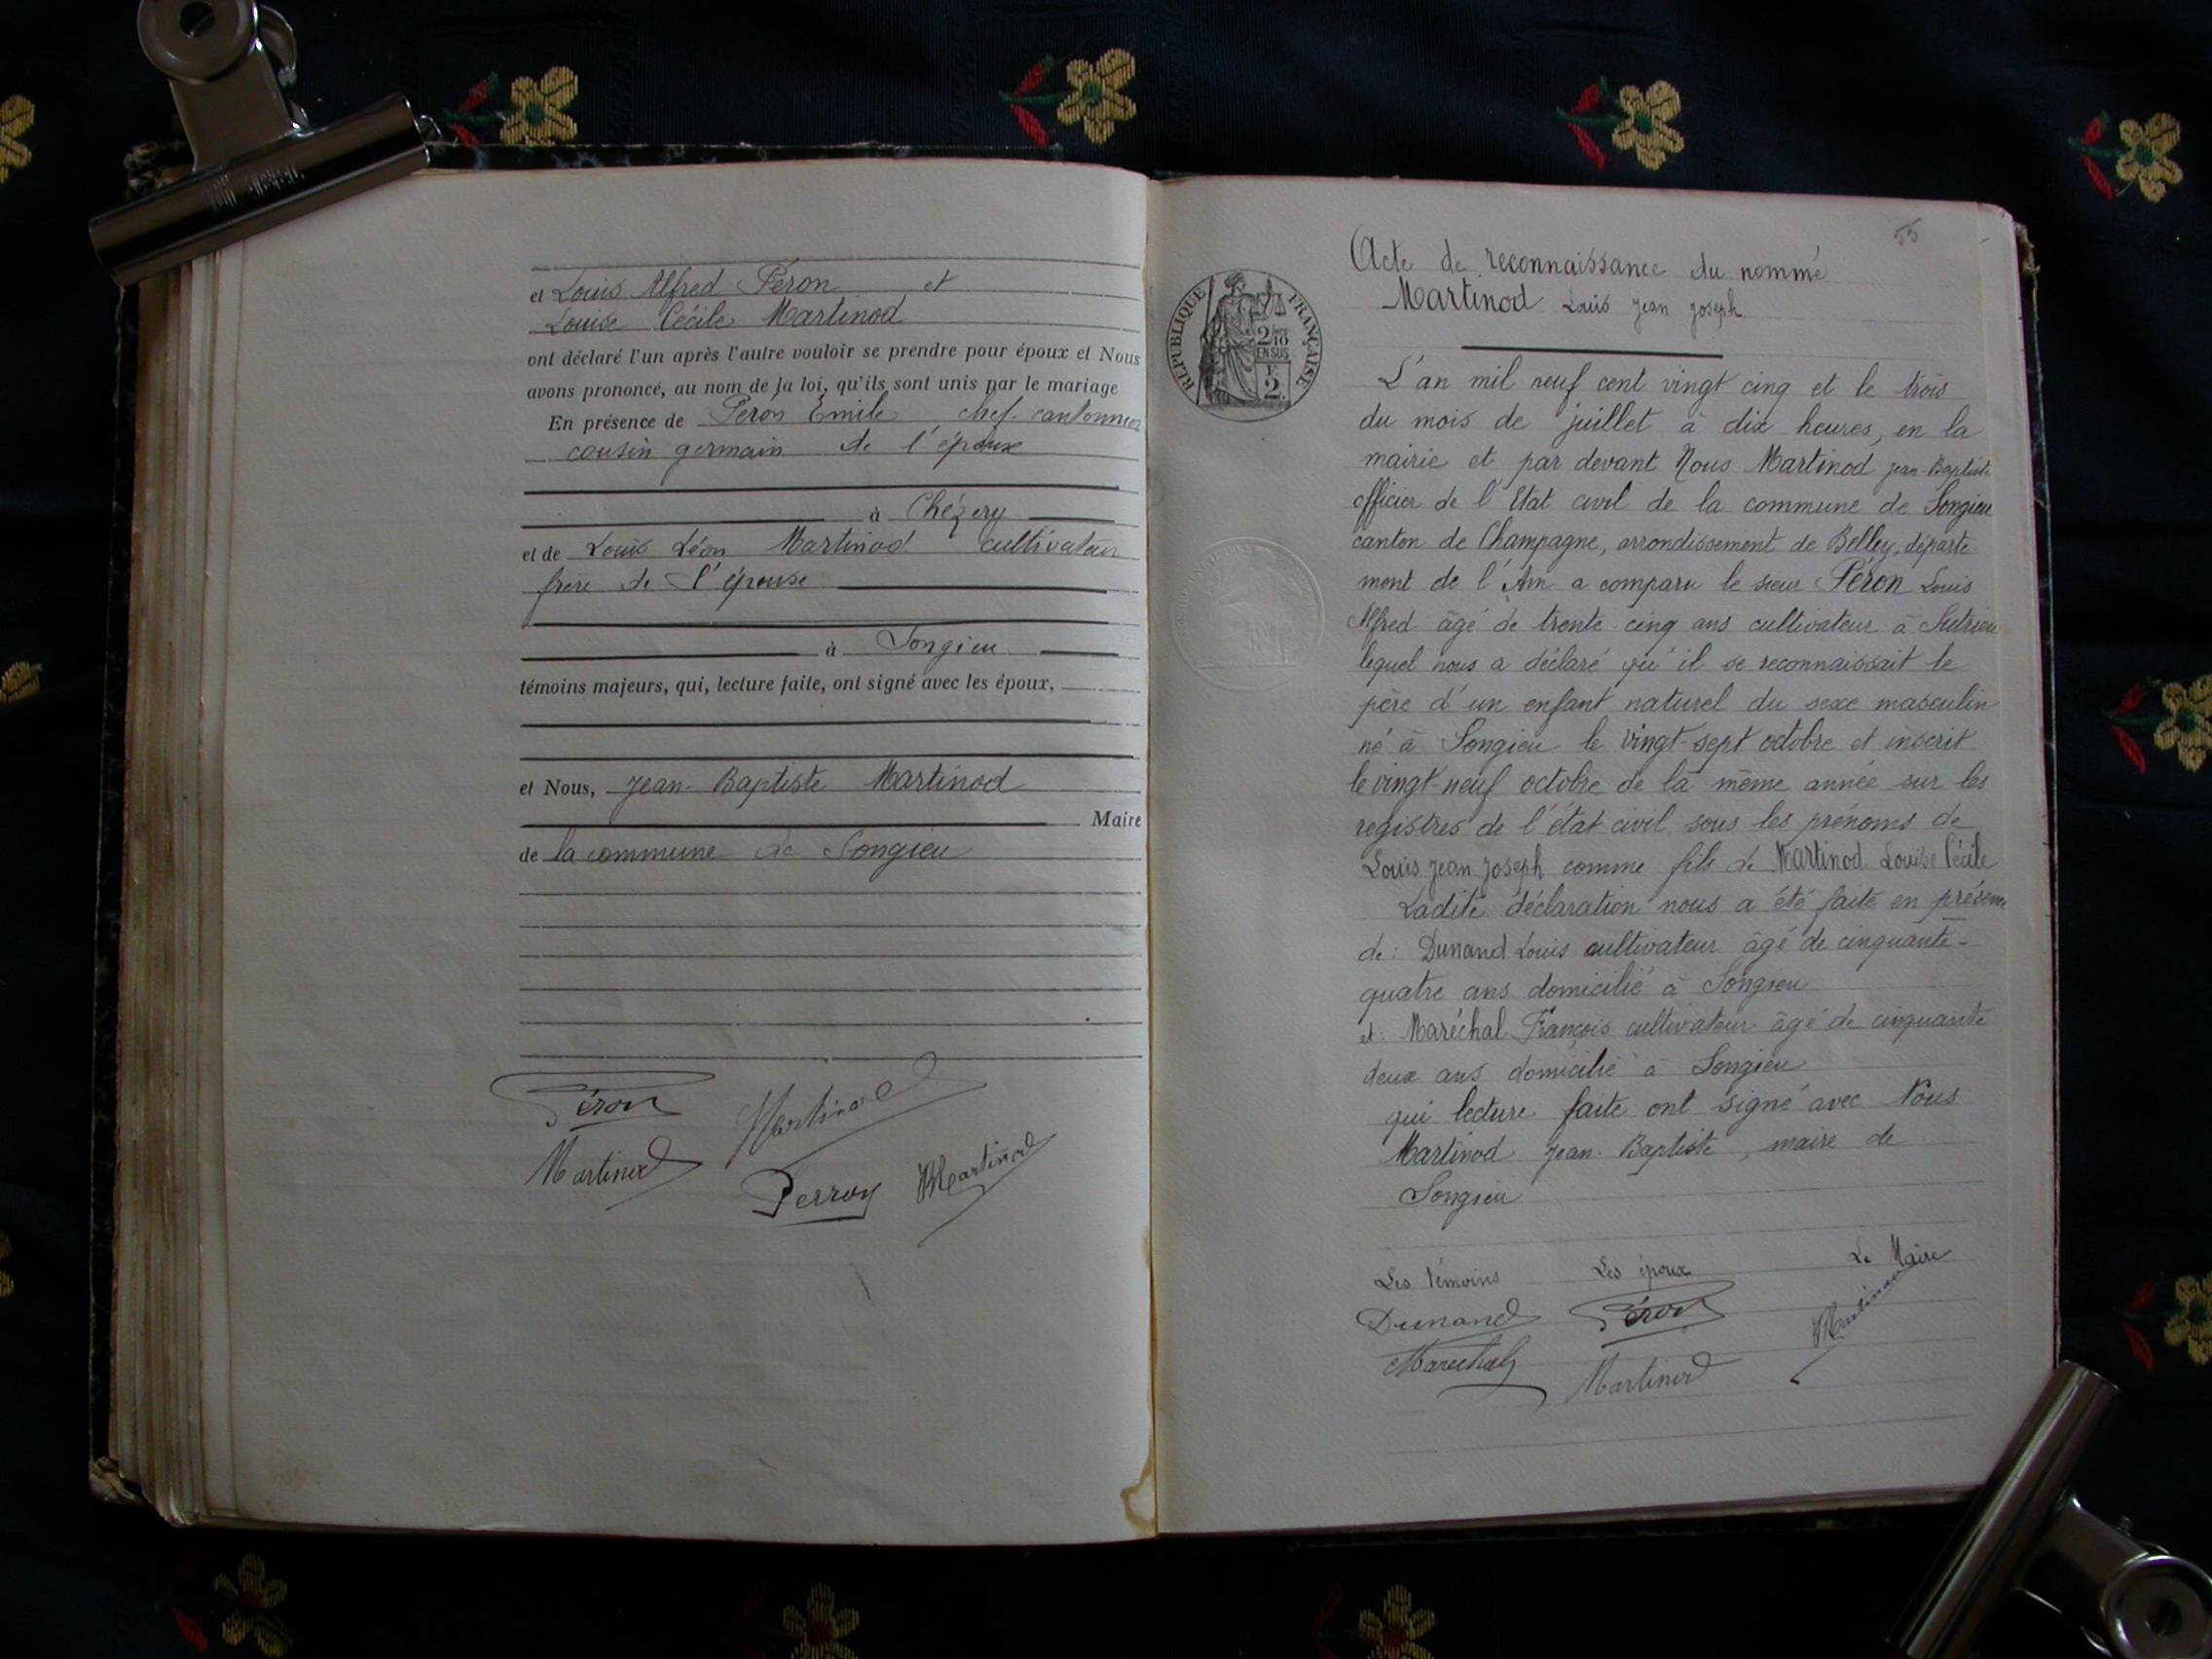 et Louis Alfred Péron et
Louise Cécile Martinod
ont déclaré l'un après l'autre vouloir se prendre pour époux et Nous
avons prononcé, au nom de la loi, qu'ils sont unis par le mariage
En présence de Péron Émile chef-cantonnier
cousin germain de l'époux
à Chézery
et de Louis Léon Martinod cultivateur
frère de l'épouse
à Songieu
témoins majeurs, qui, lecture faite, ont signé avec les époux,
et Nous, Jean-Baptiste Martinod
Maire
de la commune de Songieu
Péron Martinod
Martinod Perron Martinod
55
Acte de reconnaissance du nommé
Martinod Louis Jean Joseph
RÉPUBLIQUE FRANÇAISE
2/10
EN SUS
2F.
L'an mil neuf cent vingt cinq et le trois
du mois de juillet à dix heures, en la
mairie et par devant Nous Martinod Jean-Baptiste
officier de l'Etat civil de la commune de Songieu
canton de Champagne, arrondissement de Belley, départe-
ment de l'Ain a comparu le sieur Péron Louis
Alfred âgé de trente-cinq ans cultivateur à Sutrieu
lequel nous a déclaré qu'il se reconnaissait le
père d'un enfant naturel du sexe masculin
né à Songieu le vingt-sept octobre et inscrit
le vingt-neuf octobre de la même année sur les
registres de l'état civil sous les prénoms de
Louis Jean Joseph comme fils de Martinod Louise Cécile
Ladite déclaration nous a été faite en présence
de : Dunand Louis cultivateur âgé de cinquante-
quatre ans domicilié à Songieu
et : Maréchal François cultivateur âgé de cinquante
deux ans domicilié à Songieu
qui lecture faite ont signé avec Nous
Martinod Jean-Baptiste, maire de
Songieu
Les témoins Les époux Le Maire
Dunand Péron Martinod
Marechal Martinod